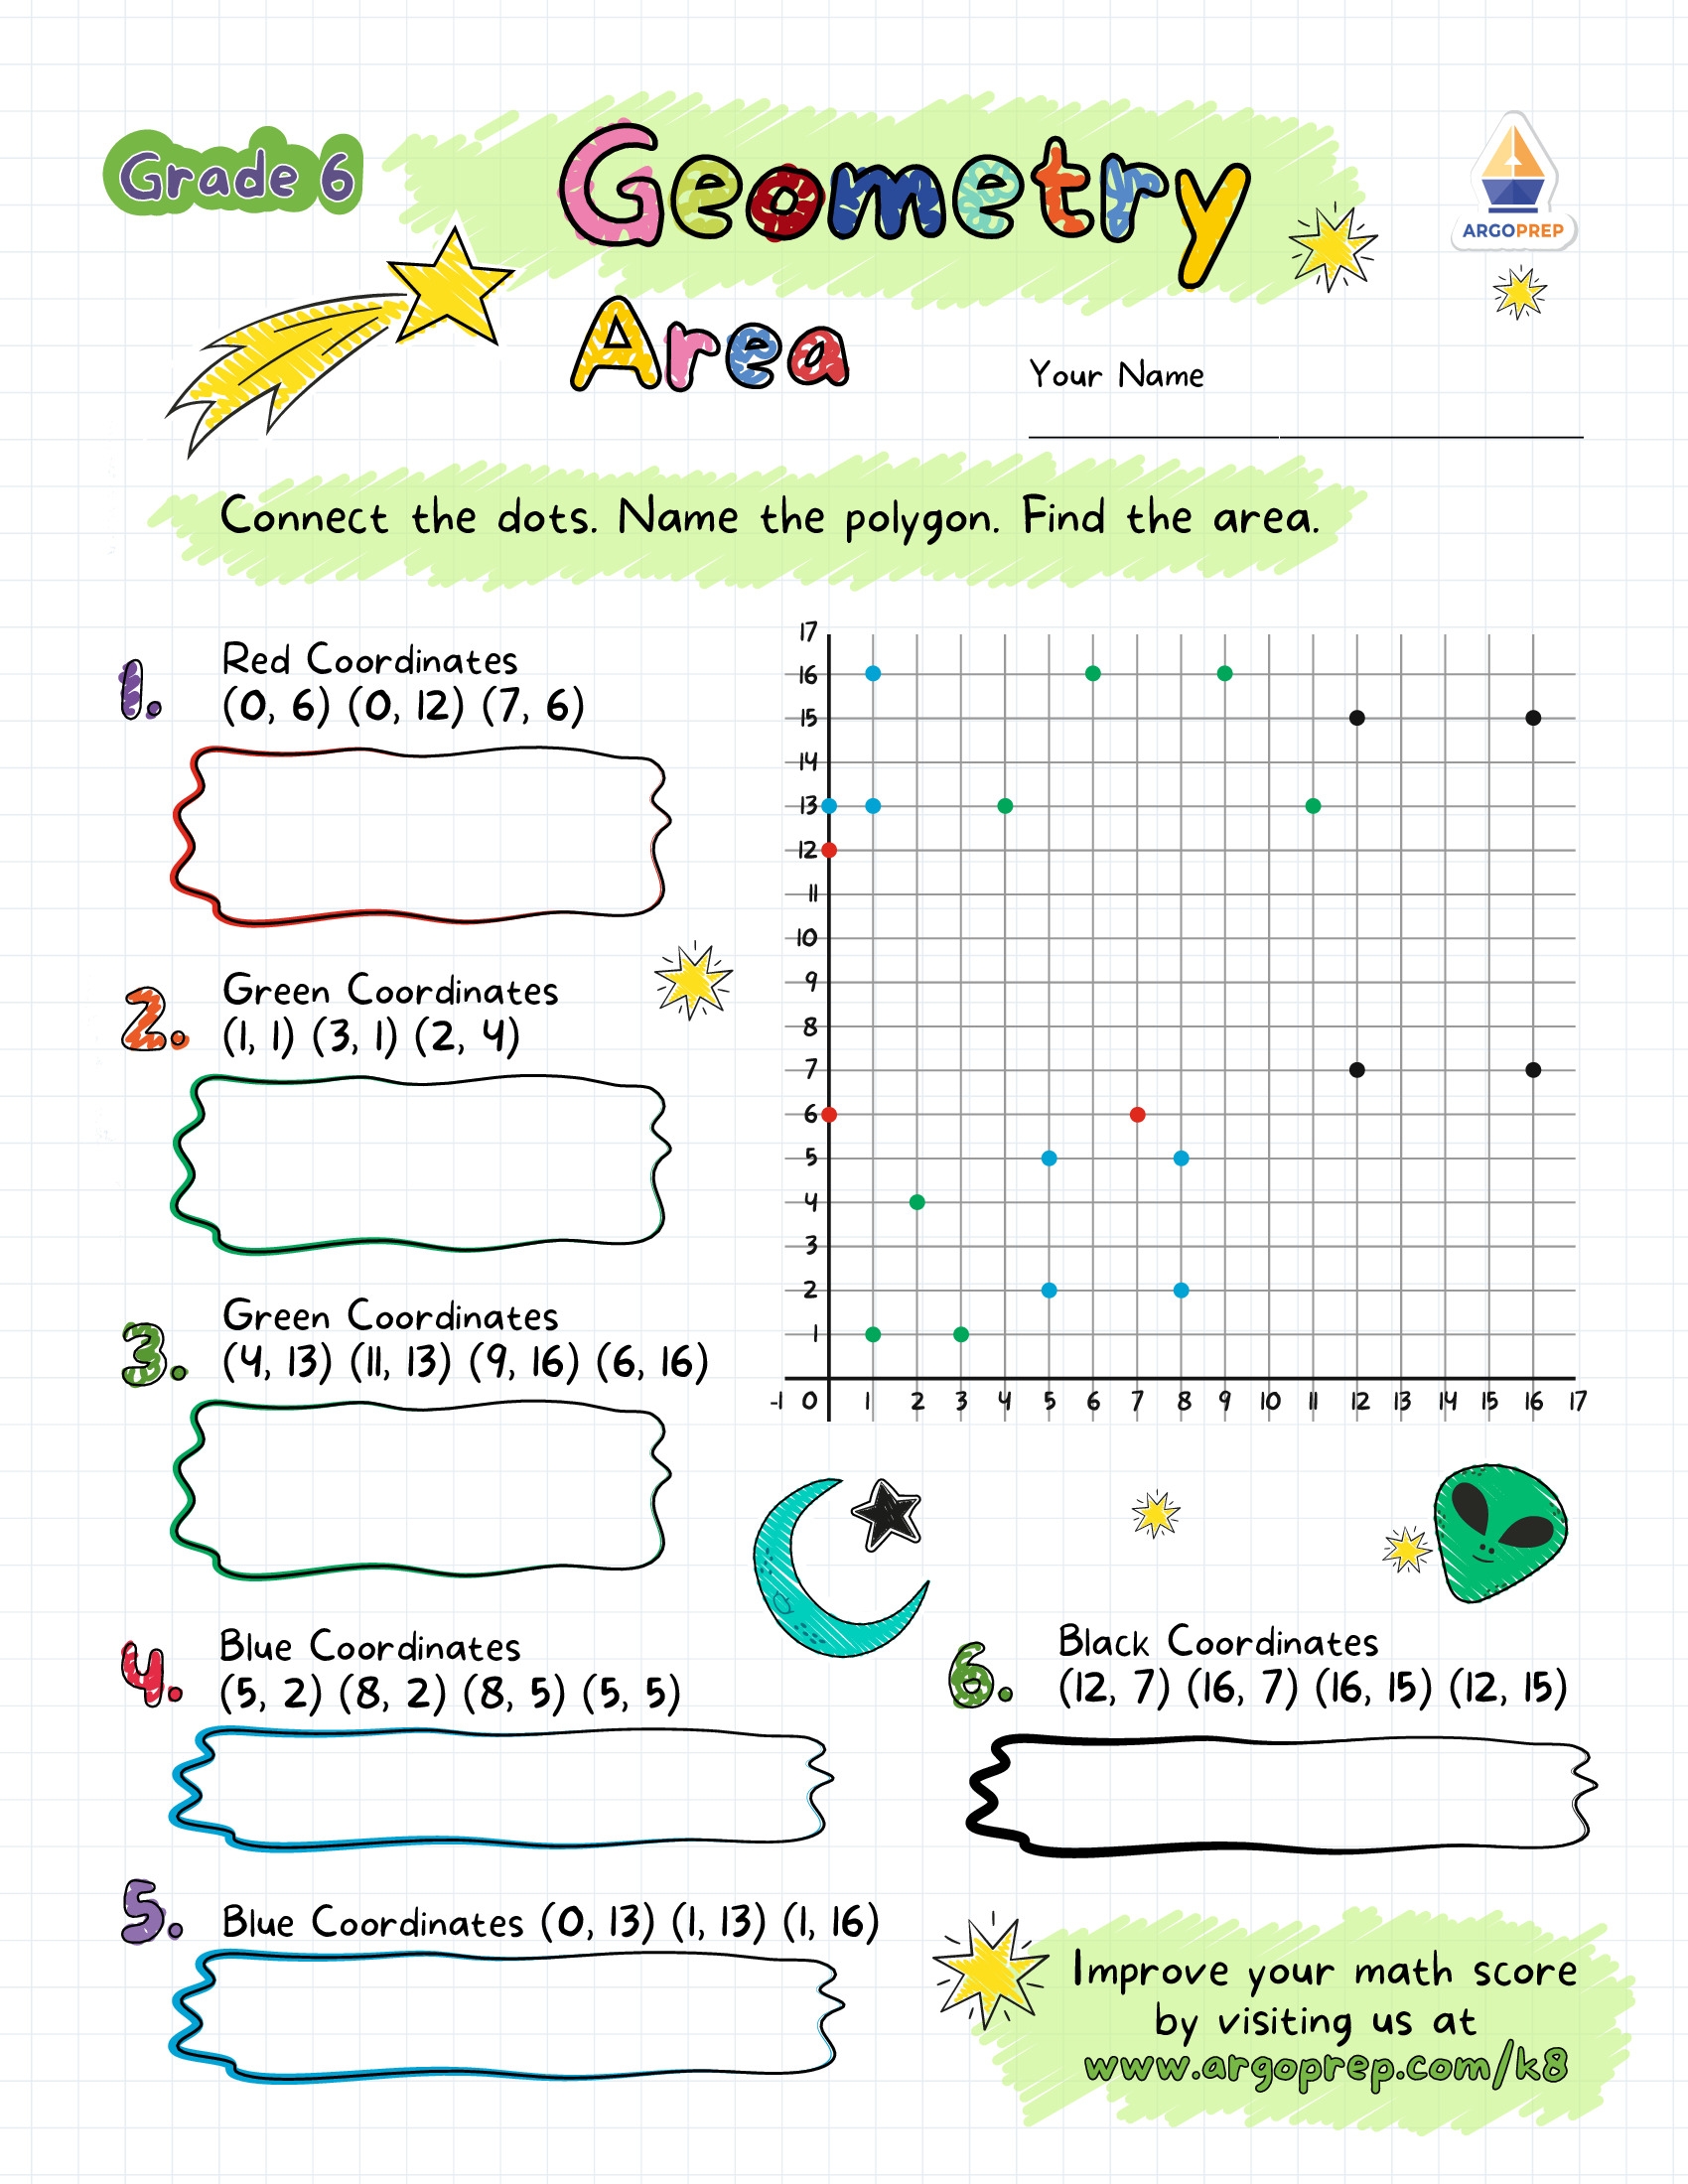 Grade 6
Geometry
ARGOPREP
Area
Your Name
Connect the dots. Name the polygon. Find the area.
1. Red Coordinates
(0, 6) (0, 12) (7, 6)
2. Green Coordinates
(1, 1) (3, 1) (2, 4)
3. Green Coordinates
(4, 13) (11, 13) (9, 16) (6, 16)
17
16
15
14
13
12
11
10
9
8
7
6
5
4
3
2
1
-1 0 1 2 3 4 5 6 7 8 9 10 11 12 13 14 15 16 17
4. Blue Coordinates
(5, 2) (8, 2) (8, 5) (5, 5)
5. Blue Coordinates (0, 13) (1, 13) (1, 16)
6. Black Coordinates
(12, 7) (16, 7) (16, 15) (12, 15)
Improve your math score
by visiting us at
www.argoprep.com/k8